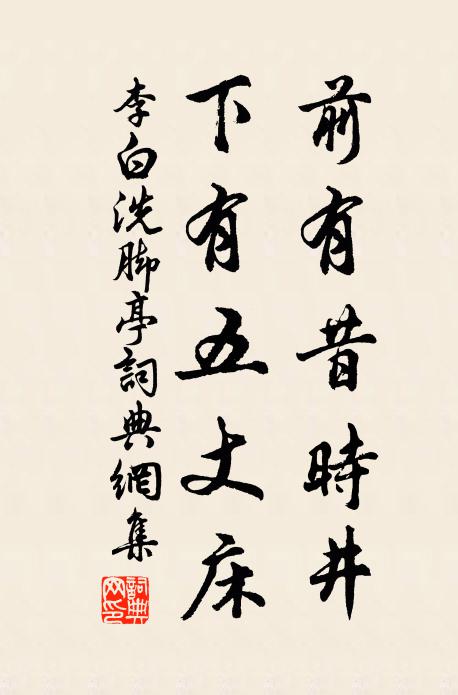 前有昔時井
下有五丈床
李白洗脚亭詞典網集
詞典網印